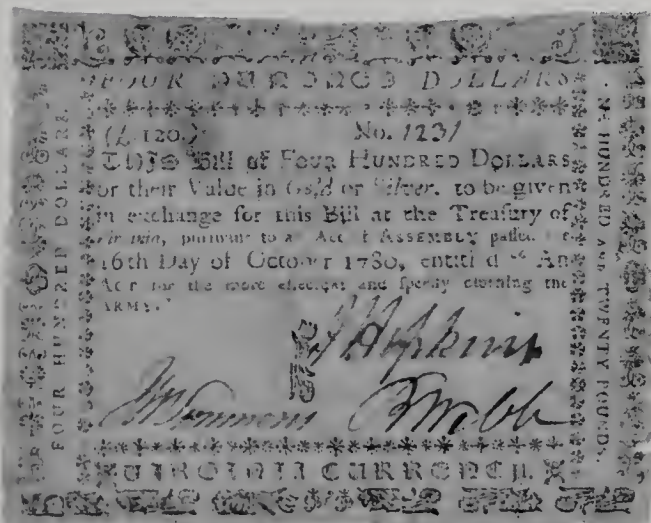 FOUR HUNDRED DOLLARS
(£. 120.) No. 1231
THIS Bill of FOUR HUNDRED DOLLARS
or their Value in Gold or Silver, to be given
in exchange for this Bill at the Treasury of
Virginia, pursuant to an Act of ASSEMBLY passed
16th Day of October 1780, entitled "An
ACT for the more effectual and speedy clothing the
ARMY."
J Hopkins
Simmons B Webb
VIRGINIA CURRENCY.
FOUR HUNDRED DOLLARS.
ONE HUNDRED AND TWENTY POUNDS.